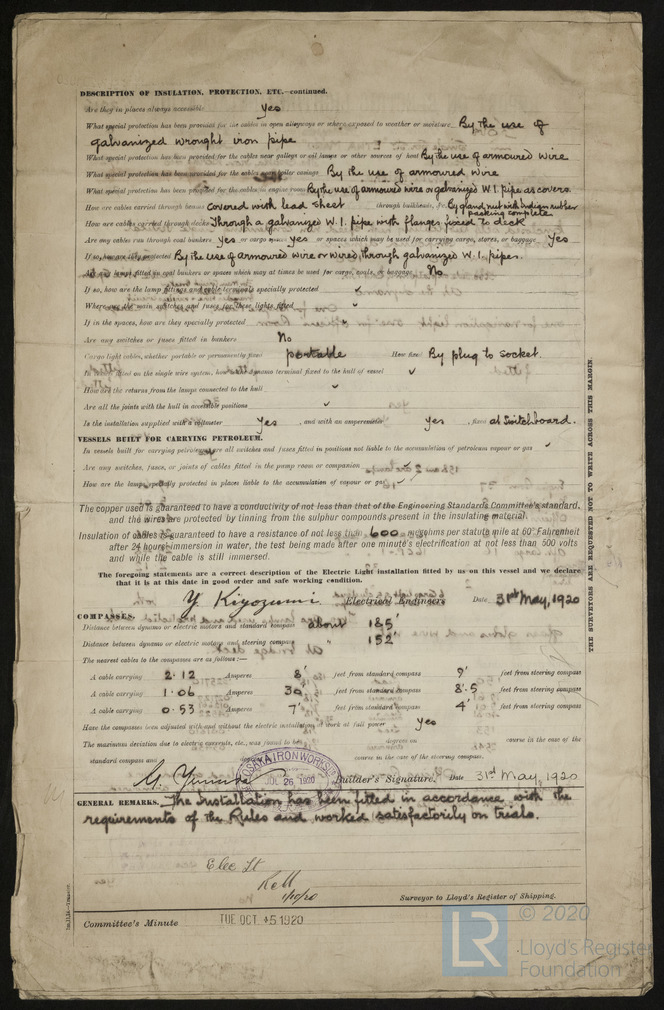 DESCRIPTION OF INSULATION, PROTECTION, ETC.—continued.
Are they in places always accessible Yes
What special protection has been provided for the cables in open alleyways or where exposed to weather or moisture By the use of
galvanized wrought iron pipe
What special protection has been provided for the cables near galleys or oil lamps or other sources of heat By the use of armoured wire
What special protection has been provided for the cables near boiler casings By the use of armoured wire
What special protection has been provided for the cables in engine room By the use of armoured wire or galvanized W.I. pipe as covers.
How are cables carried through beams covered with lead sheet through bulkheads, &c. By gland nut with Indian rubber
packing complete
How are cables carried through decks Through a galvanized W.I. pipe with flanges fixed to deck
Are any cables run through coal bunkers Yes or cargo spaces Yes or spaces which may be used for carrying cargo, stores, or baggage Yes
If so, how are they protected By the use of armoured wire or wired through galvanized W.I. pipes.
Are any lamps fitted in coal bunkers or spaces which may at times be used for cargo, coals, or baggage No
If so, how are the lamp fittings and cable terminals specially protected
Where are the main switches and fuses for these lights fitted
If in the spaces, how are they specially protected
Are any switches or fuses fitted in bunkers No
Cargo light cables, whether portable or permanently fixed portable How fixed By plug to socket.
In vessels fitted on the single wire system, how is the main terminal fixed to the hull of vessel
How are the returns from the lamps connected to the hull
Are all the joints with the hull in accessible positions
Is the installation supplied with a voltmeter Yes , and with an amperemeter Yes , fixed at Switchboard.
VESSELS BUILT FOR CARRYING PETROLEUM.
In vessels built for carrying petroleum are all switches and fuses fitted in positions not liable to the accumulation of petroleum vapour or gas
Are any switches, fuses, or joints of cables fitted in the pump room or companion
How are the lamps specially protected in places liable to the accumulation of vapour or gas
The copper used is guaranteed to have a conductivity of not less than that of the Engineering Standards Committee's standard,
and the wires are protected by tinning from the sulphur compounds present in the insulating material.
Insulation of cables is guaranteed to have a resistance of not less than 600 megohms per statute mile at 60° Fahrenheit
after 24 hours immersion in water, the test being made after one minute's electrification at not less than 500 volts
and while the cable is still immersed.
The foregoing statements are a correct description of the Electric Light installation fitted by us on this vessel and we declare
that it is at this date in good order and safe working condition.
Y. Kiyozumi Electrical Engineers Date 31st May, 1920
COMPASSES.
Distance between dynamo or electric motors and standard compass about 185'
Distance between dynamo or electric motors and steering compass " 152'
The nearest cables to the compasses are as follows:—
A cable carrying 2.12 Amperes 8' feet from standard compass 9' feet from steering compass
A cable carrying 1.06 Amperes 30' feet from standard compass 8.5 feet from steering compass
A cable carrying 0.53 Amperes 7' feet from standard compass 4' feet from steering compass
Have the compasses been adjusted with and without the electric installation at work at full power Yes
The maximum deviation due to electric currents, etc., was found to be degrees on course in the case of the
standard compass and degrees on course in the case of the steering compass.
OSAKA IRON WORKS
JUL 26 1920
Builder's Signature. Date 31st May, 1920
GENERAL REMARKS. The Installation has been fitted in accordance with the
requirements of the Rules and worked satisfactorily on trials.
Elec Lt
1/10/20
Surveyor to Lloyd's Register of Shipping.
Committee's Minute TUE OCT 5 1920
THE SURVEYORS ARE REQUESTED NOT TO WRITE ACROSS THIS MARGIN.
LR
© 2020
Lloyd's Register
Foundation